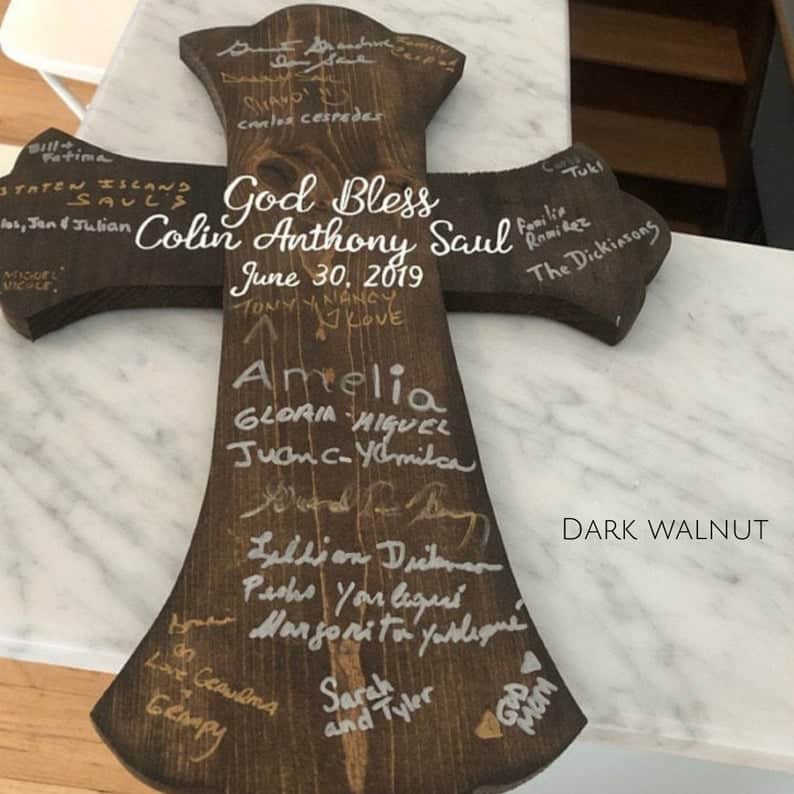 Great Grandma
Family
Cespedes
CARLOS CESPEDES
Bill +
Fatima
STATEN ISLAND
SAUL'S
Jen & Julian
MIGUEL
NICOLE.
God Bless
Colin Anthony Saul
June 30, 2019
Tuki
Familia
Ramirez
The Dickinsons
TONY Y NANCY
LOVE
Amelia
GLORIA - MIGUEL
Juan C - Yamilca
Lillian Dickinson
Pedro Yarlequé
Margarita Yarlequé
Love Grandma
Grampy
Sarah
and Tyler
GOD
MOM
DARK WALNUT